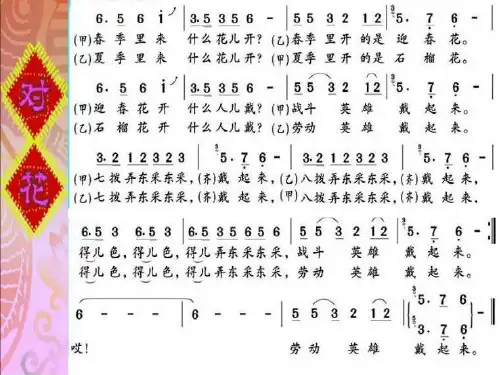 对花
6. 5 6 i | 3.5 3 5 6 5 | 5 5 3 2 1 2 | 5. 7 6 -
(甲)春季里来 什么花儿开?(乙)春季里开的是 迎春花。
(乙)夏季里来 什么花儿开?(甲)夏季里开的是 石榴花。
6. 5 6 i | 3.5 3 5 6 5 | 5 5 3 2 1 2 | 5. 7 6 -
(甲)迎春花开 什么人儿戴?(甲)战斗 英雄 戴起来。
(乙)石榴花开 什么人儿戴?(乙)劳动 英雄 戴起来。
3. 2 1 2 3 2 3 | 5. 7 6 - | 3. 2 1 2 3 2 3 | 5. 7 6 -
(甲)七拨弄东采东采,(齐)戴起来,(乙)八拨弄东采东采,(齐)戴起来,
(乙)七拨弄东采东采,(齐)戴起来,(甲)八拨弄东采东采,(齐)戴起来,
6.5 3 6.5 3 | 6.5 3 5 6 5 6 5 | 5 5 3 2 1 2 | 5. 7 6 - :‖
得儿色,得儿色,得儿弄东采东采,战斗 英雄 戴起来。
得儿色,得儿色,得儿弄东采东采,劳动 英雄 戴起来。
6 - | 6 - | 5 5 3 2 1 2 | 5. 7 6
3. 7 6
哎! 劳动 英雄 戴起来。